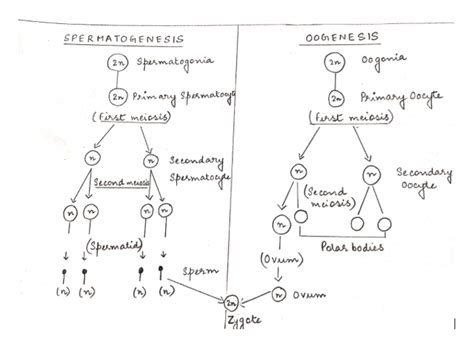 SPERMATOGENESIS
2n Spermatogonia
2n Primary Spermatocyte
(First meiosis)
n n Secondary Spermatocyte
Second meiosis
n n n n
(Spermatid)
Sperm
(n) (n) (n) (n)
OOGENESIS
2n Oogonia
2n Primary Oocyte
(First meiosis)
n n Secondary Oocyte
(Second meiosis)
n
Polar bodies
(Ovum)
n Ovum
2n
Zygote